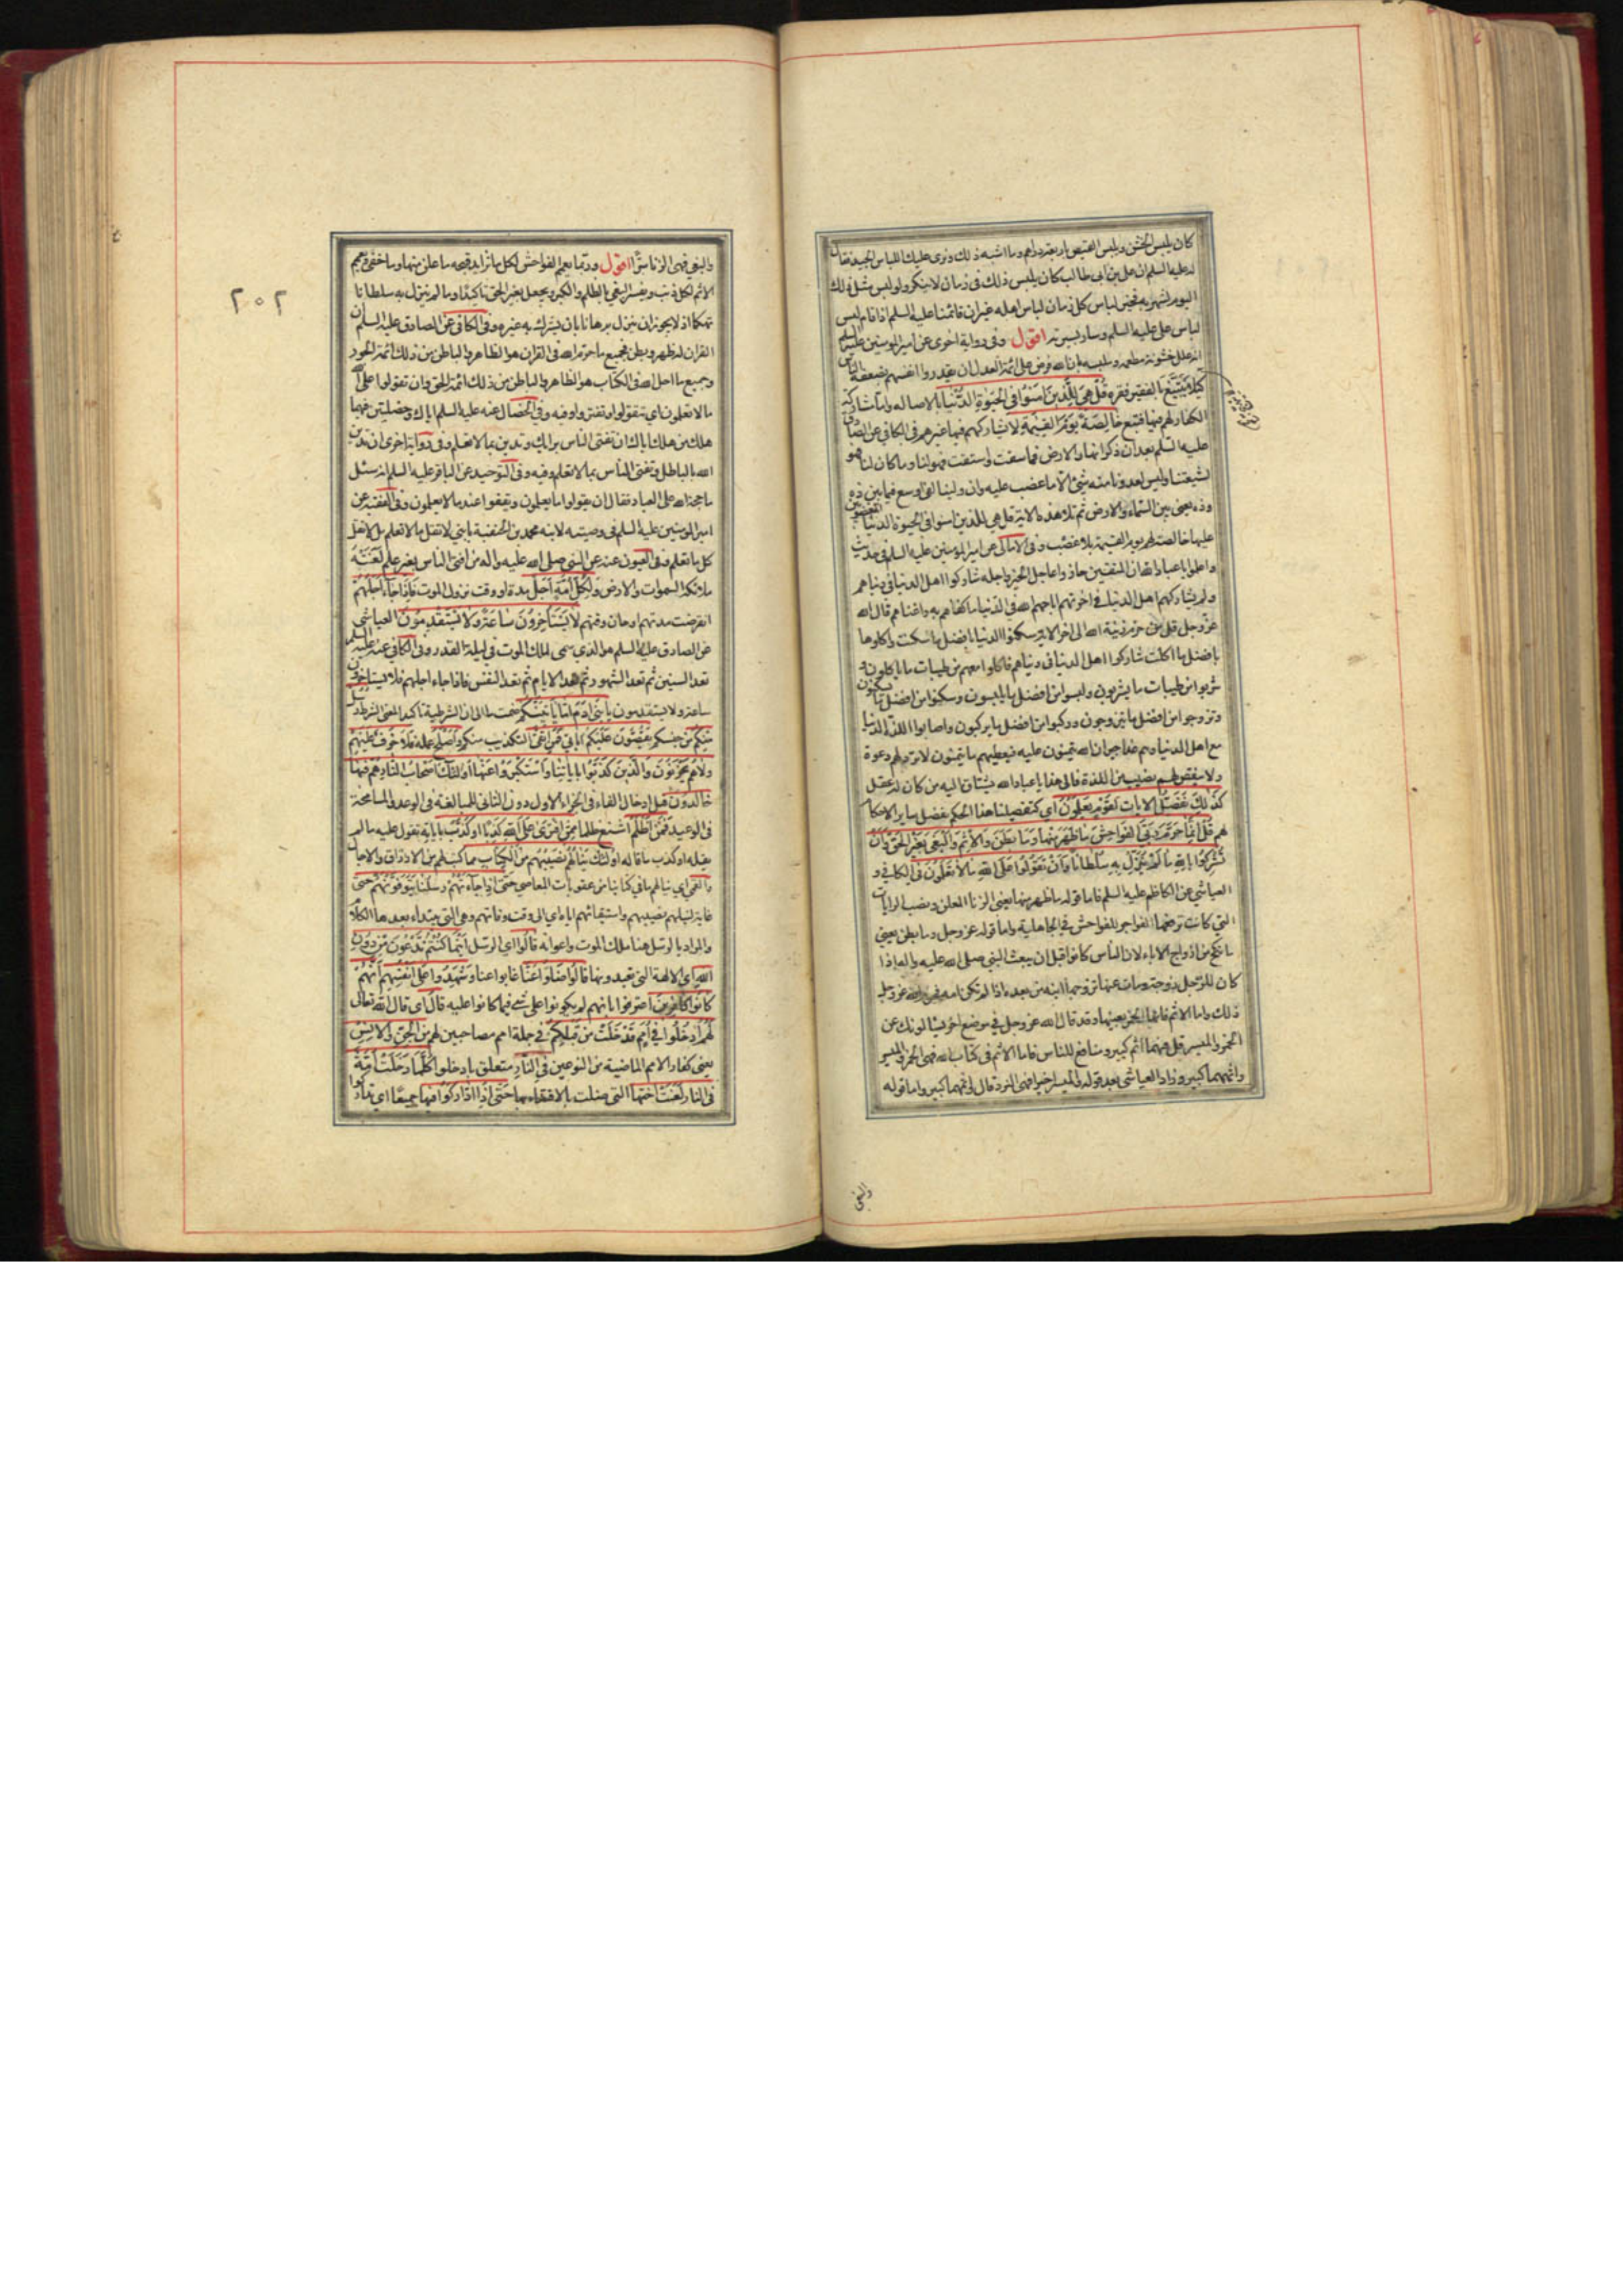 كان يلبس الخشن ويلبس القميص باربعة دراهم وما اشبه ذلك ونرى عليك اللباس الجيد فقال
له عليه السلم ان علي بن ابي طالب كان يلبس ذلك في زمان لا ينكر ولو لبس مثل ذلك
اليوم لشهر به فخير لباس كل زمان لباس اهله غير ان قائمنا عليه السلم اذا قام لبس
لباس علي عليه السلم وسار بسيرته اقول وفي رواية اخرى عن امير المؤمنين عليه السلم
انه علل خشونة مطعمه وملبسه بان الله فرض على ائمة العدل ان يقدروا انفسهم بضعفة الناس
كيلا يتبيغ بالفقير فقره قُلْ هِيَ لِلَّذِينَ آمَنُوا فِي الْحَيٰوةِ الدُّنْيَا بالاصالة واما مشاركة
الكفار لهم فيها فتبع خَالِصَةً يَوْمَ الْقِيٰمَةِ لا يشاركهم فيها غيرهم في الكافي عن الصادق
عليه السلم بعد ان ذكر انهار الارض فما سقت واستقت فهو لنا وما كان لنا فهو
لشيعتنا وليس لعدونا منه شيئ الا ما غصب عليه وان ولينا لفي اوسع فيما بين ذه
وذه يعني بين السماء والارض ثم تلا هذه الاية قل هي للذين امنوا في الحيوة الدنيا المغصوبين
عليها خالصة لهم يوم القيمة بلا غصب وفي الامالي عن امير المؤمنين عليه السلم في حديث
واعلموا يا عباد الله ان المتقين حازوا عاجل الخير واجله شاركوا اهل الدنيا في دنياهم
ولم يشاركهم اهل الدنيا في اخرتهم اباحهم الله في الدنيا ما كفاهم به واغناهم قال الله
عز وجل قل من حرم زينة الله الى اخر الاية سكنوا الدنيا بافضل ما سكنت واكلوها
بافضل ما اكلت شاركوا اهل الدنيا في دنياهم فاكلوا معهم من طيبات ما ياكلون و
شربوا من طيبات ما يشربون ولبسوا من افضل ما يلبسون وسكنوا من افضل ما يسكنون
وتزوجوا من افضل ما يتزوجون وركبوا من افضل ما يركبون واصابوا اللذة الدنيا
مع اهل الدنيا وهم غدا جيران الله يتمنون عليه فيعطيهم ما يتمنون لا ترد لهم دعوة
ولا ينقص لهم نصيب من اللذة فالى هذا يا عباد الله يشتاق اليه من كان له عقل
كَذٰلِكَ نُفَصِّلُ الْاٰيَاتِ لِقَوْمٍ يَعْلَمُونَ اي كتفصيلنا هذا الحكم نفصل ساير الاحكام
لهم قُلْ اِنَّمَا حَرَّمَ رَبِّيَ الْفَوَاحِشَ مَا ظَهَرَ مِنْهَا وَمَا بَطَنَ وَالْاِثْمَ وَالْبَغْيَ بِغَيْرِ الْحَقِّ وَاَنْ
تُشْرِكُوا بِاللهِ مَا لَمْ يُنَزِّلْ بِهِ سُلْطَانًا وَاَنْ تَقُولُوا عَلَى اللهِ مَا لَا تَعْلَمُونَ في الكافي و
العياشي عن الكاظم عليه السلم فاما قوله ما ظهر منها يعني الزنا المعلن ونصب الرايات
التي كانت ترفعها الفواجر للفواحش في الجاهلية واما قوله عز وجل وما بطن يعني
ما نكح من ازواج الاباء لان الناس كانوا قبل ان يبعث النبي صلى الله عليه واله اذا
كان للرجل زوجة ومات عنها تزوجها ابنه من بعده اذا لم تكن امه فحرم الله عز وجل
ذلك واما الاثم فانها الخمر بعينها وقد قال الله عز وجل في موضع اخر يسئلونك عن
الخمر والميسر قل فيهما اثم كبير ومنافع للناس فاما الاثم في كتاب الله فهي الخمر والميسر
واثمهما كبير وزاد العياشي بعد قوله والميسر اخيرا فهي النرد قال واثمهما كبير واما قوله
والبغي
٢٠٢
والبغي فهي الزنا سرا اقول وربما يعم الفواحش لكل ما تزايد قبحه ما علن منها وما خفي ويعم
الاثم لكل ذنب ويفسر البغي بالظلم والكبر ويجعل بغير الحق تاكيدا وما لم ينزل به سلطانا
تهكما اذ لا يجوز ان ينزل برهانا بان يشرك به غيره وفي الكافي عن الصادق عليه السلم ان
القران له ظهر وبطن فجميع ما حرم الله في القران هو الظاهر والباطن من ذلك ائمة الجور
وجميع ما احل الله في الكتاب هو الظاهر والباطن من ذلك ائمة الحق وان تقولوا على الله
ما لا تعلمون اي تتقولوا وتفتروا وفيه وفي الخصال عنه عليه السلم اياك وخصلتين فيهما
هلك من هلك اياك ان تفتي الناس برايك وتدين بما لا تعلم وفي رواية اخرى ان تدين
الله بالباطل وتفتي الناس بما لا تعلم وفيه وفي التوحيد عن الباقر عليه السلم انه سئل
ما حجة الله على العباد فقال ان يقولوا ما يعلمون ويقفوا عند ما لا يعلمون وفي الفقيه عن
امير المؤمنين عليه السلم في وصيته لابنه محمد بن الحنفية يا بني لا تقل ما لا تعلم بل لا تقل
كل ما تعلم وفي العيون عنه عن النبي صلى الله عليه واله من افتى الناس بغير علم لعنته
ملائكة السموات والارض وَلِكُلِّ اُمَّةٍ اَجَلٌ مدة او وقت نزول الموت فَاِذَا جَاءَ اَجَلُهُمْ
انقرضت مدتهم او حان وقتهم لَا يَسْتَاْخِرُونَ سَاعَةً وَلَا يَسْتَقْدِمُونَ العياشي
عن الصادق عليه السلم هو الذي سمى لملك الموت في ليلة القدر وفي الكافي عنه عليه السلم
تعد السنين ثم تعد الشهور ثم تعد الايام ثم تعد النفس فاذا جاء اجلهم فلا يستاخرون
ساعة ولا يستقدمون يَا بَنِي اٰدَمَ اِمَّا يَاْتِيَنَّكُمْ ضمت ما الى ان الشرطية تاكيدا لمعنى الشرط رُسُلٌ
مِنْكُمْ من جنسكم يَقُصُّونَ عَلَيْكُمْ اٰيَاتِي فَمَنِ اتَّقٰى التكذيب منكم وَاَصْلَحَ عمله فَلَا خَوْفٌ عَلَيْهِمْ
وَلَا هُمْ يَحْزَنُونَ وَالَّذِينَ كَذَّبُوا بِاٰيَاتِنَا وَاسْتَكْبَرُوا عَنْهَا اُولٰئِكَ اَصْحَابُ النَّارِ هُمْ فِيهَا
خَالِدُونَ قيل ادخال الفاء في الجزاء الاول دون الثاني للمبالغة في الوعد والمسامحة
في الوعيد فَمَنْ اَظْلَمُ اشنع ظلما مِمَّنِ افْتَرٰى عَلَى اللهِ كَذِبًا اَوْ كَذَّبَ بِاٰيَاتِهِ تقول عليه ما لم
يقله او كذب ما قاله اُولٰئِكَ يَنَالُهُمْ نَصِيبُهُمْ مِنَ الْكِتَابِ مما كتب لهم من الارزاق والاجال
والقمي اي ينالهم ما في كتابنا من عقوبات المعاصي حَتّٰى اِذَا جَاءَتْهُمْ رُسُلُنَا يَتَوَفَّوْنَهُمْ حتى
غاية لنيلهم نصيبهم واستيفائهم اياه اي الى وقت وفاتهم وهي التي يبتداء بعدها الكلام
والمراد بالرسل هنا ملك الموت واعوانه قَالُوا اي الرسل اَيْنَمَا كُنْتُمْ تَدْعُونَ مِنْ دُونِ
اللهِ اي الالهة التي تعبدونها قَالُوا ضَلُّوا عَنَّا غابوا عنا وَشَهِدُوا عَلٰى اَنْفُسِهِمْ اَنَّهُمْ
كَانُوا كَافِرِينَ اعترفوا بانهم لم يكونوا على شئ فيما كانوا عليه قَالَ اي قال الله تعالى
لهم ادْخُلُوا فِي اُمَمٍ قَدْ خَلَتْ مِنْ قَبْلِكُمْ في جملة امم مصاحبين لهم مِنَ الْجِنِّ وَالْاِنْسِ
يعني كفار الامم الماضية من النوعين فِي النَّارِ متعلق بادخلوا كُلَّمَا دَخَلَتْ اُمَّةٌ
في النار لَعَنَتْ اُخْتَهَا التي ضلت بالاقتداء بها حَتّٰى اِذَا ادَّارَكُوا فِيهَا جَمِيعًا اي تداركوا